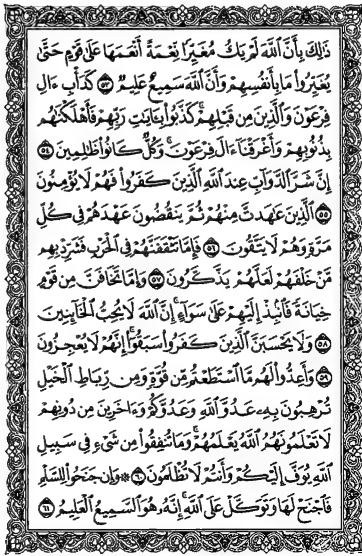 ذَٰلِكَ بِأَنَّ ٱللَّهَ لَمْ يَكُ مُغَيِّرًا نِّعْمَةً أَنْعَمَهَا عَلَىٰ قَوْمٍ حَتَّىٰ
يُغَيِّرُوا۟ مَا بِأَنفُسِهِمْ وَأَنَّ ٱللَّهَ سَمِيعٌ عَلِيمٌ ٥٣ كَدَأْبِ ءَالِ
فِرْعَوْنَ وَٱلَّذِينَ مِن قَبْلِهِمْ ۚ كَذَّبُوا۟ بِـَٔايَـٰتِ رَبِّهِمْ فَأَهْلَكْنَـٰهُم
بِذُنُوبِهِمْ وَأَغْرَقْنَآ ءَالَ فِرْعَوْنَ ۚ وَكُلٌّ كَانُوا۟ ظَـٰلِمِينَ ٥٤
إِنَّ شَرَّ ٱلدَّوَآبِّ عِندَ ٱللَّهِ ٱلَّذِينَ كَفَرُوا۟ فَهُمْ لَا يُؤْمِنُونَ
٥٥ ٱلَّذِينَ عَـٰهَدتَّ مِنْهُمْ ثُمَّ يَنقُضُونَ عَهْدَهُمْ فِى كُلِّ
مَرَّةٍ وَهُمْ لَا يَتَّقُونَ ٥٦ فَإِمَّا تَثْقَفَنَّهُمْ فِى ٱلْحَرْبِ فَشَرِّدْ بِهِم
مَّنْ خَلْفَهُمْ لَعَلَّهُمْ يَذَّكَّرُونَ ٥٧ وَإِمَّا تَخَافَنَّ مِن قَوْمٍ
خِيَانَةً فَٱنۢبِذْ إِلَيْهِمْ عَلَىٰ سَوَآءٍ ۚ إِنَّ ٱللَّهَ لَا يُحِبُّ ٱلْخَآئِنِينَ
٥٨ وَلَا يَحْسَبَنَّ ٱلَّذِينَ كَفَرُوا۟ سَبَقُوٓا۟ ۚ إِنَّهُمْ لَا يُعْجِزُونَ
٥٩ وَأَعِدُّوا۟ لَهُم مَّا ٱسْتَطَعْتُم مِّن قُوَّةٍ وَمِن رِّبَاطِ ٱلْخَيْلِ
تُرْهِبُونَ بِهِۦ عَدُوَّ ٱللَّهِ وَعَدُوَّكُمْ وَءَاخَرِينَ مِن دُونِهِمْ
لَا تَعْلَمُونَهُمُ ٱللَّهُ يَعْلَمُهُمْ ۚ وَمَا تُنفِقُوا۟ مِن شَىْءٍ فِى سَبِيلِ
ٱللَّهِ يُوَفَّ إِلَيْكُمْ وَأَنتُمْ لَا تُظْلَمُونَ ٦٠ ۞ وَإِن جَنَحُوا۟ لِلسَّلْمِ
فَٱجْنَحْ لَهَا وَتَوَكَّلْ عَلَى ٱللَّهِ ۚ إِنَّهُۥ هُوَ ٱلسَّمِيعُ ٱلْعَلِيمُ ٦١